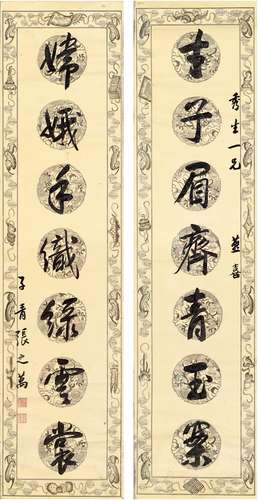 士子眉齊青玉案
秀生一兄 並喜
嫦娥手織綠雲裳
子青張之萬